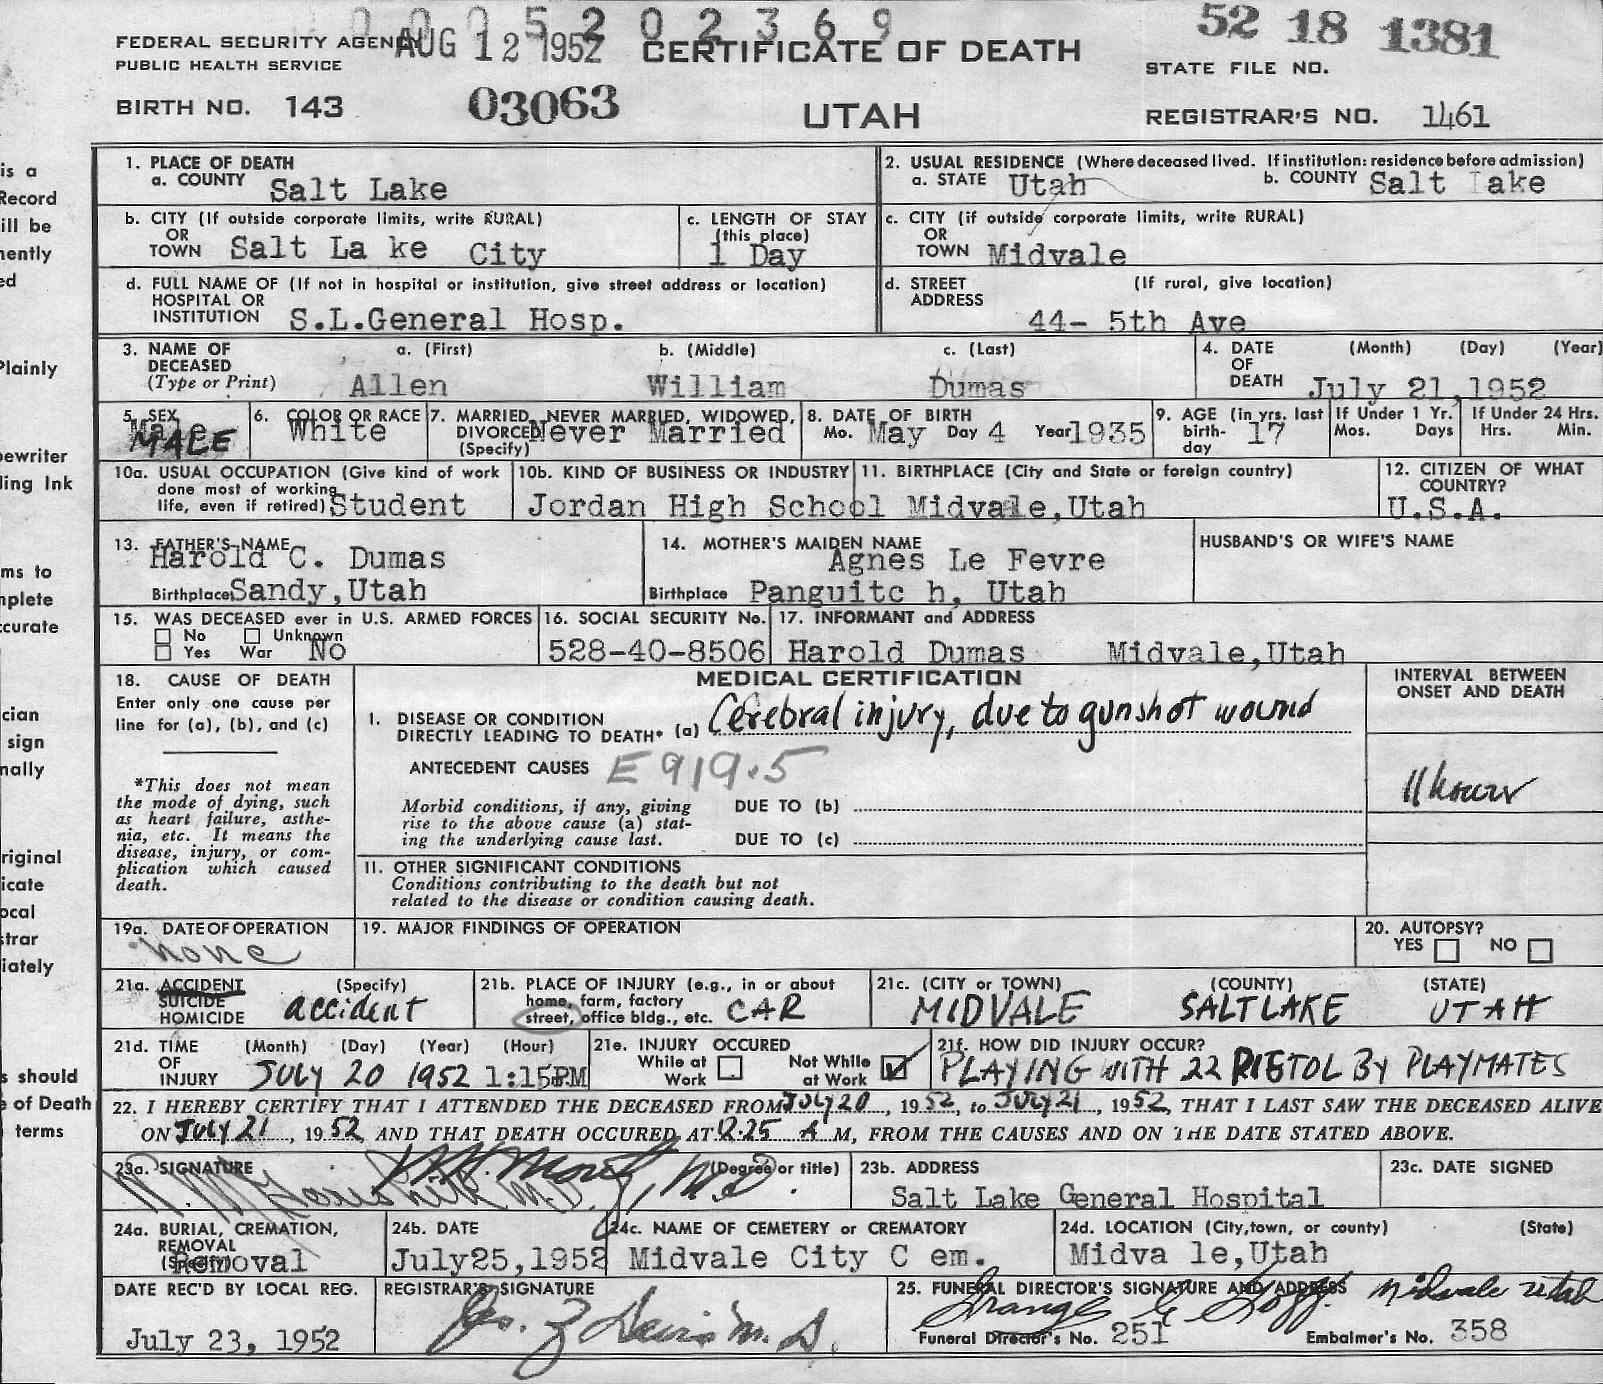 0005202369
FEDERAL SECURITY AGENCY AUG 12 1952 CERTIFICATE OF DEATH 52 18 1381
PUBLIC HEALTH SERVICE STATE FILE NO.
BIRTH NO. 143 03063 UTAH REGISTRAR'S NO. 1461
1. PLACE OF DEATH
a. COUNTY Salt Lake
2. USUAL RESIDENCE (Where deceased lived. If institution: residence before admission)
a. STATE Utah b. COUNTY Salt Lake
b. CITY (If outside corporate limits, write RURAL)
OR
TOWN Salt La ke City
c. LENGTH OF STAY
(this place)
1 Day
c. CITY (if outside corporate limits, write RURAL)
OR
TOWN Midvale
d. FULL NAME OF (If not in hospital or institution, give street address or location)
HOSPITAL OR
INSTITUTION S.L.General Hosp.
d. STREET (If rural, give location)
ADDRESS
44- 5th Ave
3. NAME OF a. (First) b. (Middle) c. (Last)
DECEASED
(Type or Print) Allen William Dumas
4. DATE (Month) (Day) (Year)
OF
DEATH July 21,1952
5. SEX
Male
MALE
6. COLOR OR RACE
White
7. MARRIED, NEVER MARRIED, WIDOWED,
DIVORCED Never Married
(Specify)
8. DATE OF BIRTH
Mo. May Day 4 Year 1935
9. AGE (in yrs. last
birth- 17
day
If Under 1 Yr.
Mos. Days
If Under 24 Hrs.
Hrs. Min.
10a. USUAL OCCUPATION (Give kind of work
done most of working
life, even if retired) Student
10b. KIND OF BUSINESS OR INDUSTRY
Jordan High School
11. BIRTHPLACE (City and State or foreign country)
Midvale,Utah
12. CITIZEN OF WHAT
COUNTRY?
U.S.A.
13. FATHER'S NAME
Harold C. Dumas
Birthplace Sandy,Utah
14. MOTHER'S MAIDEN NAME
Agnes Le Fevre
Birthplace Panguitc h, Utah
HUSBAND'S OR WIFE'S NAME
15. WAS DECEASED ever in U.S. ARMED FORCES
No Unknown
Yes War No
16. SOCIAL SECURITY No.
528-40-8506
17. INFORMANT and ADDRESS
Harold Dumas Midvale,Utah
18. CAUSE OF DEATH
Enter only one cause per
line for (a), (b), and (c)
*This does not mean
the mode of dying, such
as heart failure, asthe-
nia, etc. It means the
disease, injury, or com-
plication which caused
death.
MEDICAL CERTIFICATION
I. DISEASE OR CONDITION
DIRECTLY LEADING TO DEATH* (a) Cerebral injury, due to gunshot wound
ANTECEDENT CAUSES E919.5
Morbid conditions, if any, giving DUE TO (b)
rise to the above cause (a) stat-
ing the underlying cause last. DUE TO (c)
II. OTHER SIGNIFICANT CONDITIONS
Conditions contributing to the death but not
related to the disease or condition causing death.
INTERVAL BETWEEN
ONSET AND DEATH
11 hours
19a. DATE OF OPERATION
none
19. MAJOR FINDINGS OF OPERATION
20. AUTOPSY?
YES NO
21a. ACCIDENT (Specify)
SUICIDE
HOMICIDE accident
21b. PLACE OF INJURY (e.g., in or about
home, farm, factory
street, office bldg., etc. CAR
21c. (CITY or TOWN) (COUNTY) (STATE)
MIDVALE SALT LAKE UTAH
21d. TIME (Month) (Day) (Year) (Hour)
OF
INJURY JULY 20 1952 1:15PM
21e. INJURY OCCURED
While at Not While
Work at Work
21f. HOW DID INJURY OCCUR?
PLAYING WITH 22 PISTOL BY PLAYMATES
22. I HEREBY CERTIFY THAT I ATTENDED THE DECEASED FROM JULY 20, 1952, to JULY 21, 1952, THAT I LAST SAW THE DECEASED ALIVE
ON JULY 21, 1952 AND THAT DEATH OCCURED AT 12:25 A M, FROM THE CAUSES AND ON THE DATE STATED ABOVE.
23a. SIGNATURE (Degree or title)
M.D.
23b. ADDRESS
Salt Lake General Hospital
23c. DATE SIGNED
24a. BURIAL, CREMATION,
REMOVAL
(Specify) Removal
24b. DATE
July25,1952
24c. NAME OF CEMETERY or CREMATORY
Midvale City C em.
24d. LOCATION (City,town, or county) (State)
Midva le,Utah
DATE REC'D BY LOCAL REG.
July 23, 1952
REGISTRAR'S SIGNATURE
M.D.
25. FUNERAL DIRECTOR'S SIGNATURE AND ADDRESS Midvale Utah
Funeral Director's No. 251 Embalmer's No. 358
is a
Record
ill be
nently
ed
Plainly
pewriter
ling Ink
ms to
nplete
ccurate
cian
sign
nally
riginal
icate
ocal
strar
iately
s should
e of Death
terms